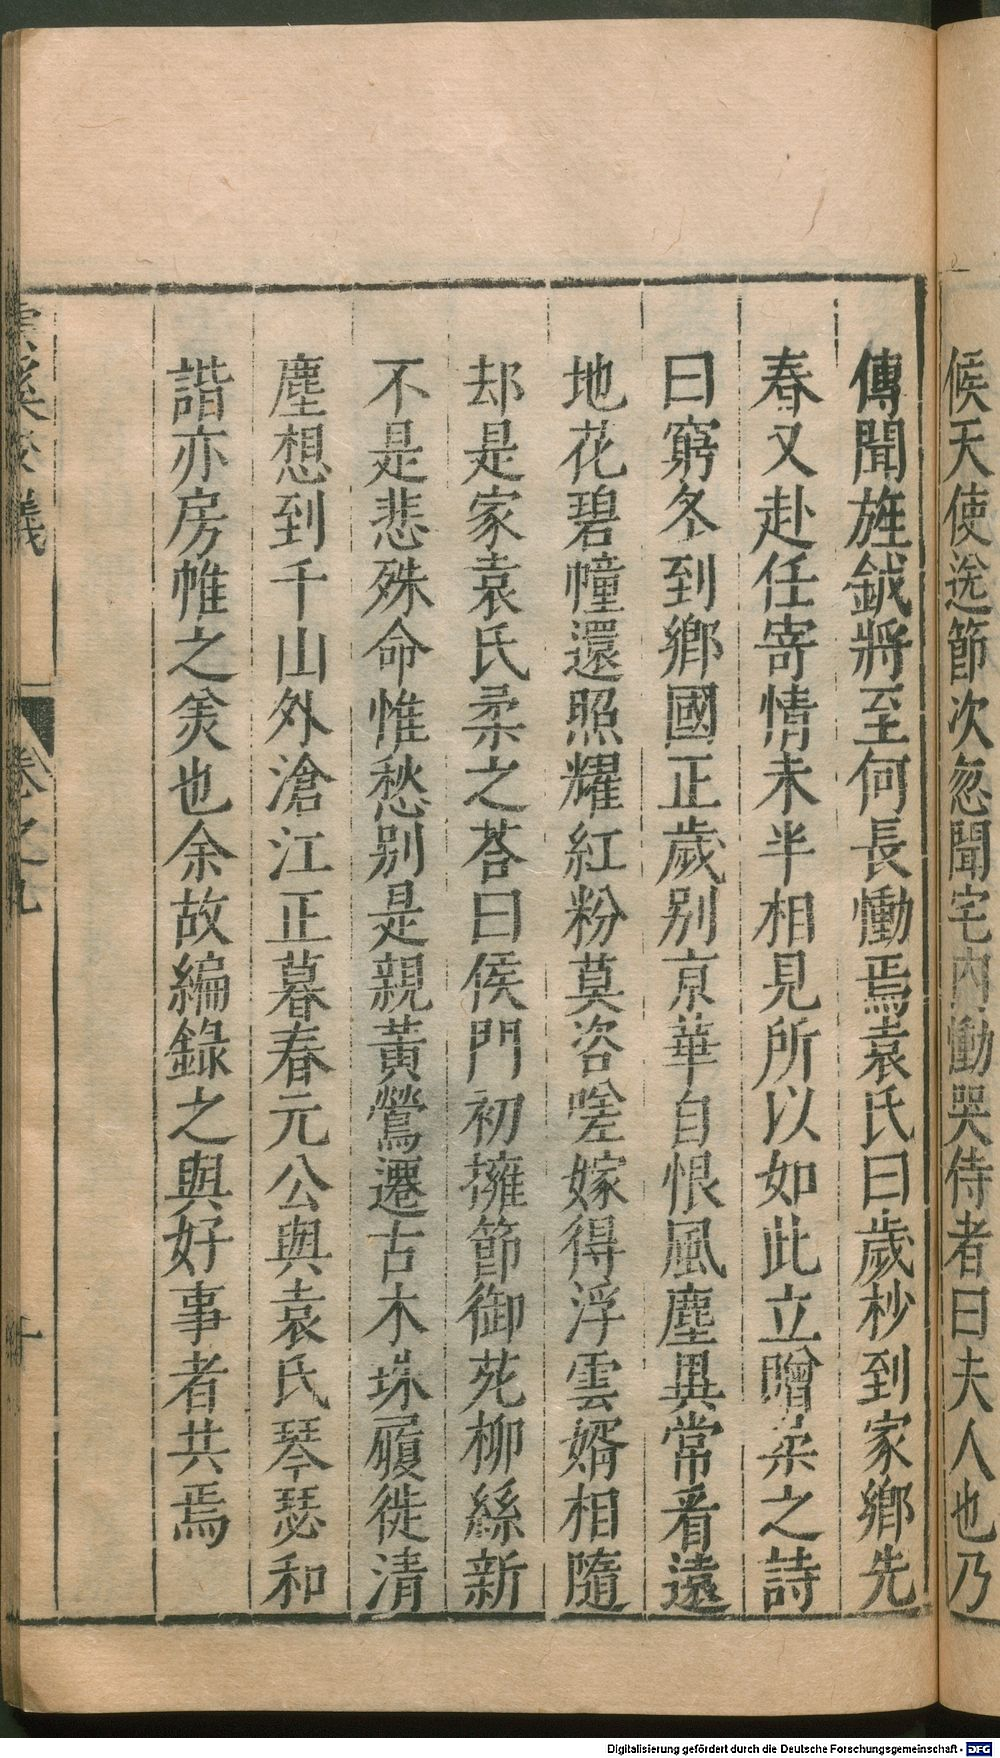 候天使送節次忽聞宅内慟哭侍者曰夫人也乃
傳聞旌鉞將至何長慟焉袁氏曰歲杪到家鄉先
春又赴任寄情未半相見所以如此立贈柔之詩
曰窮冬到鄉國正歲别京華自恨風塵異常看遠
地花碧幢還照耀紅粉莫咨嗟嫁得浮雲婿相隨
却是家袁氏柔之荅曰侯門初擁節御苑柳絲新
不是悲殊命惟愁别是親黃鶯遷古木珠履徙清
塵想到千山外滄江正暮春元公與袁氏琴瑟和
諧亦房帷之美也余故編錄之與好事者共焉
雲溪友議
卷之九
十
Digitalisierung gefördert durch die Deutsche Forschungsgemeinschaft - DFG